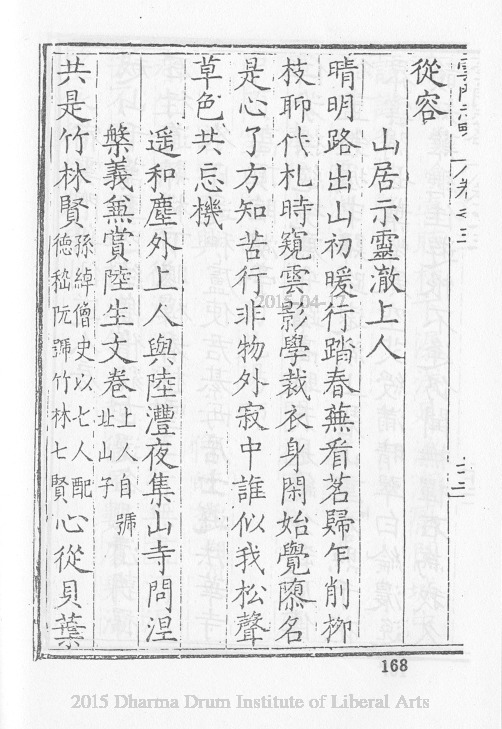 雲門志略 卷之三
從容
山居示靈澈上人
晴明路出山初暖行踏春蕪看茗歸乍削柳
枝聊代札時窺雲影學裁衣身閑始覺隳名
是心了方知苦行非物外寂中誰似我松聲
草色共忘機
遥和塵外上人與陸灃夜集山寺問涅
槃義兼賞陸生文卷上人自號北山子
共是竹林賢孫綽僧史以七人配德嵇阮號竹林七賢心從貝葉
168
2015-04-17
2015 Dharma Drum Institute of Liberal Arts